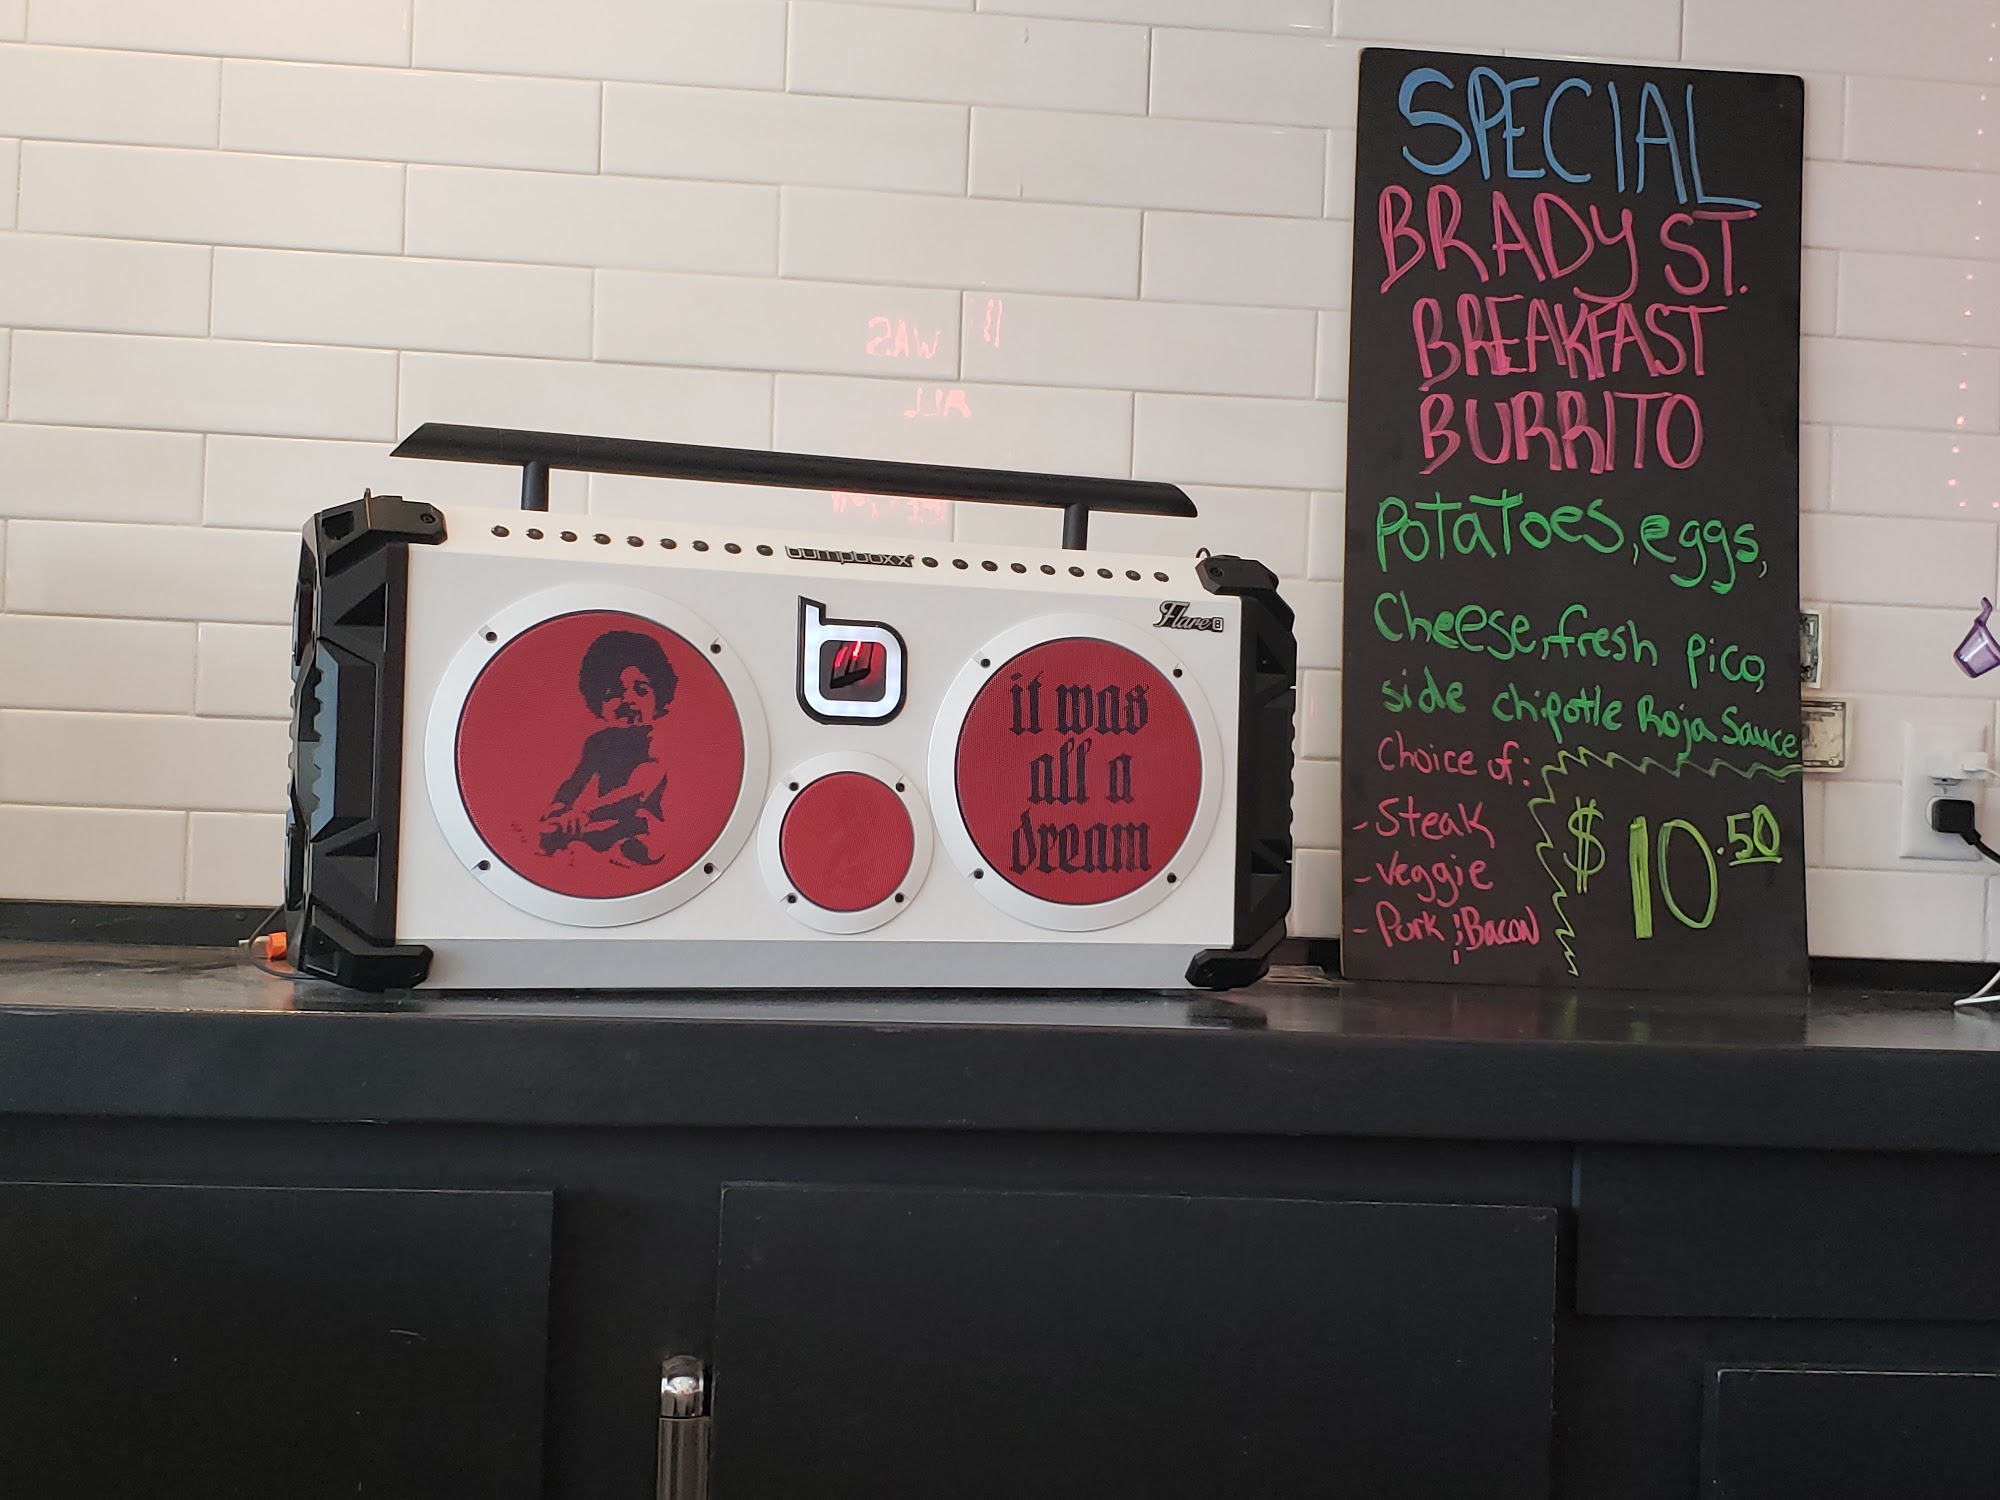 bumpboxx
Flare8
b
it was
all a
dream
SPECIAL
BRADY ST.
BREAKFAST
BURRITO
POTATOES, eggs,
Cheese, fresh pico,
side chipotle Roja Sauce
Choice of:
- Steak
- veggie
- Pork ; Bacon
$10.50
WAS
ALL